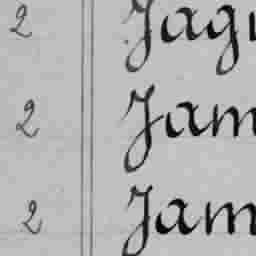 2 Jag
2 Jam
2 Jam